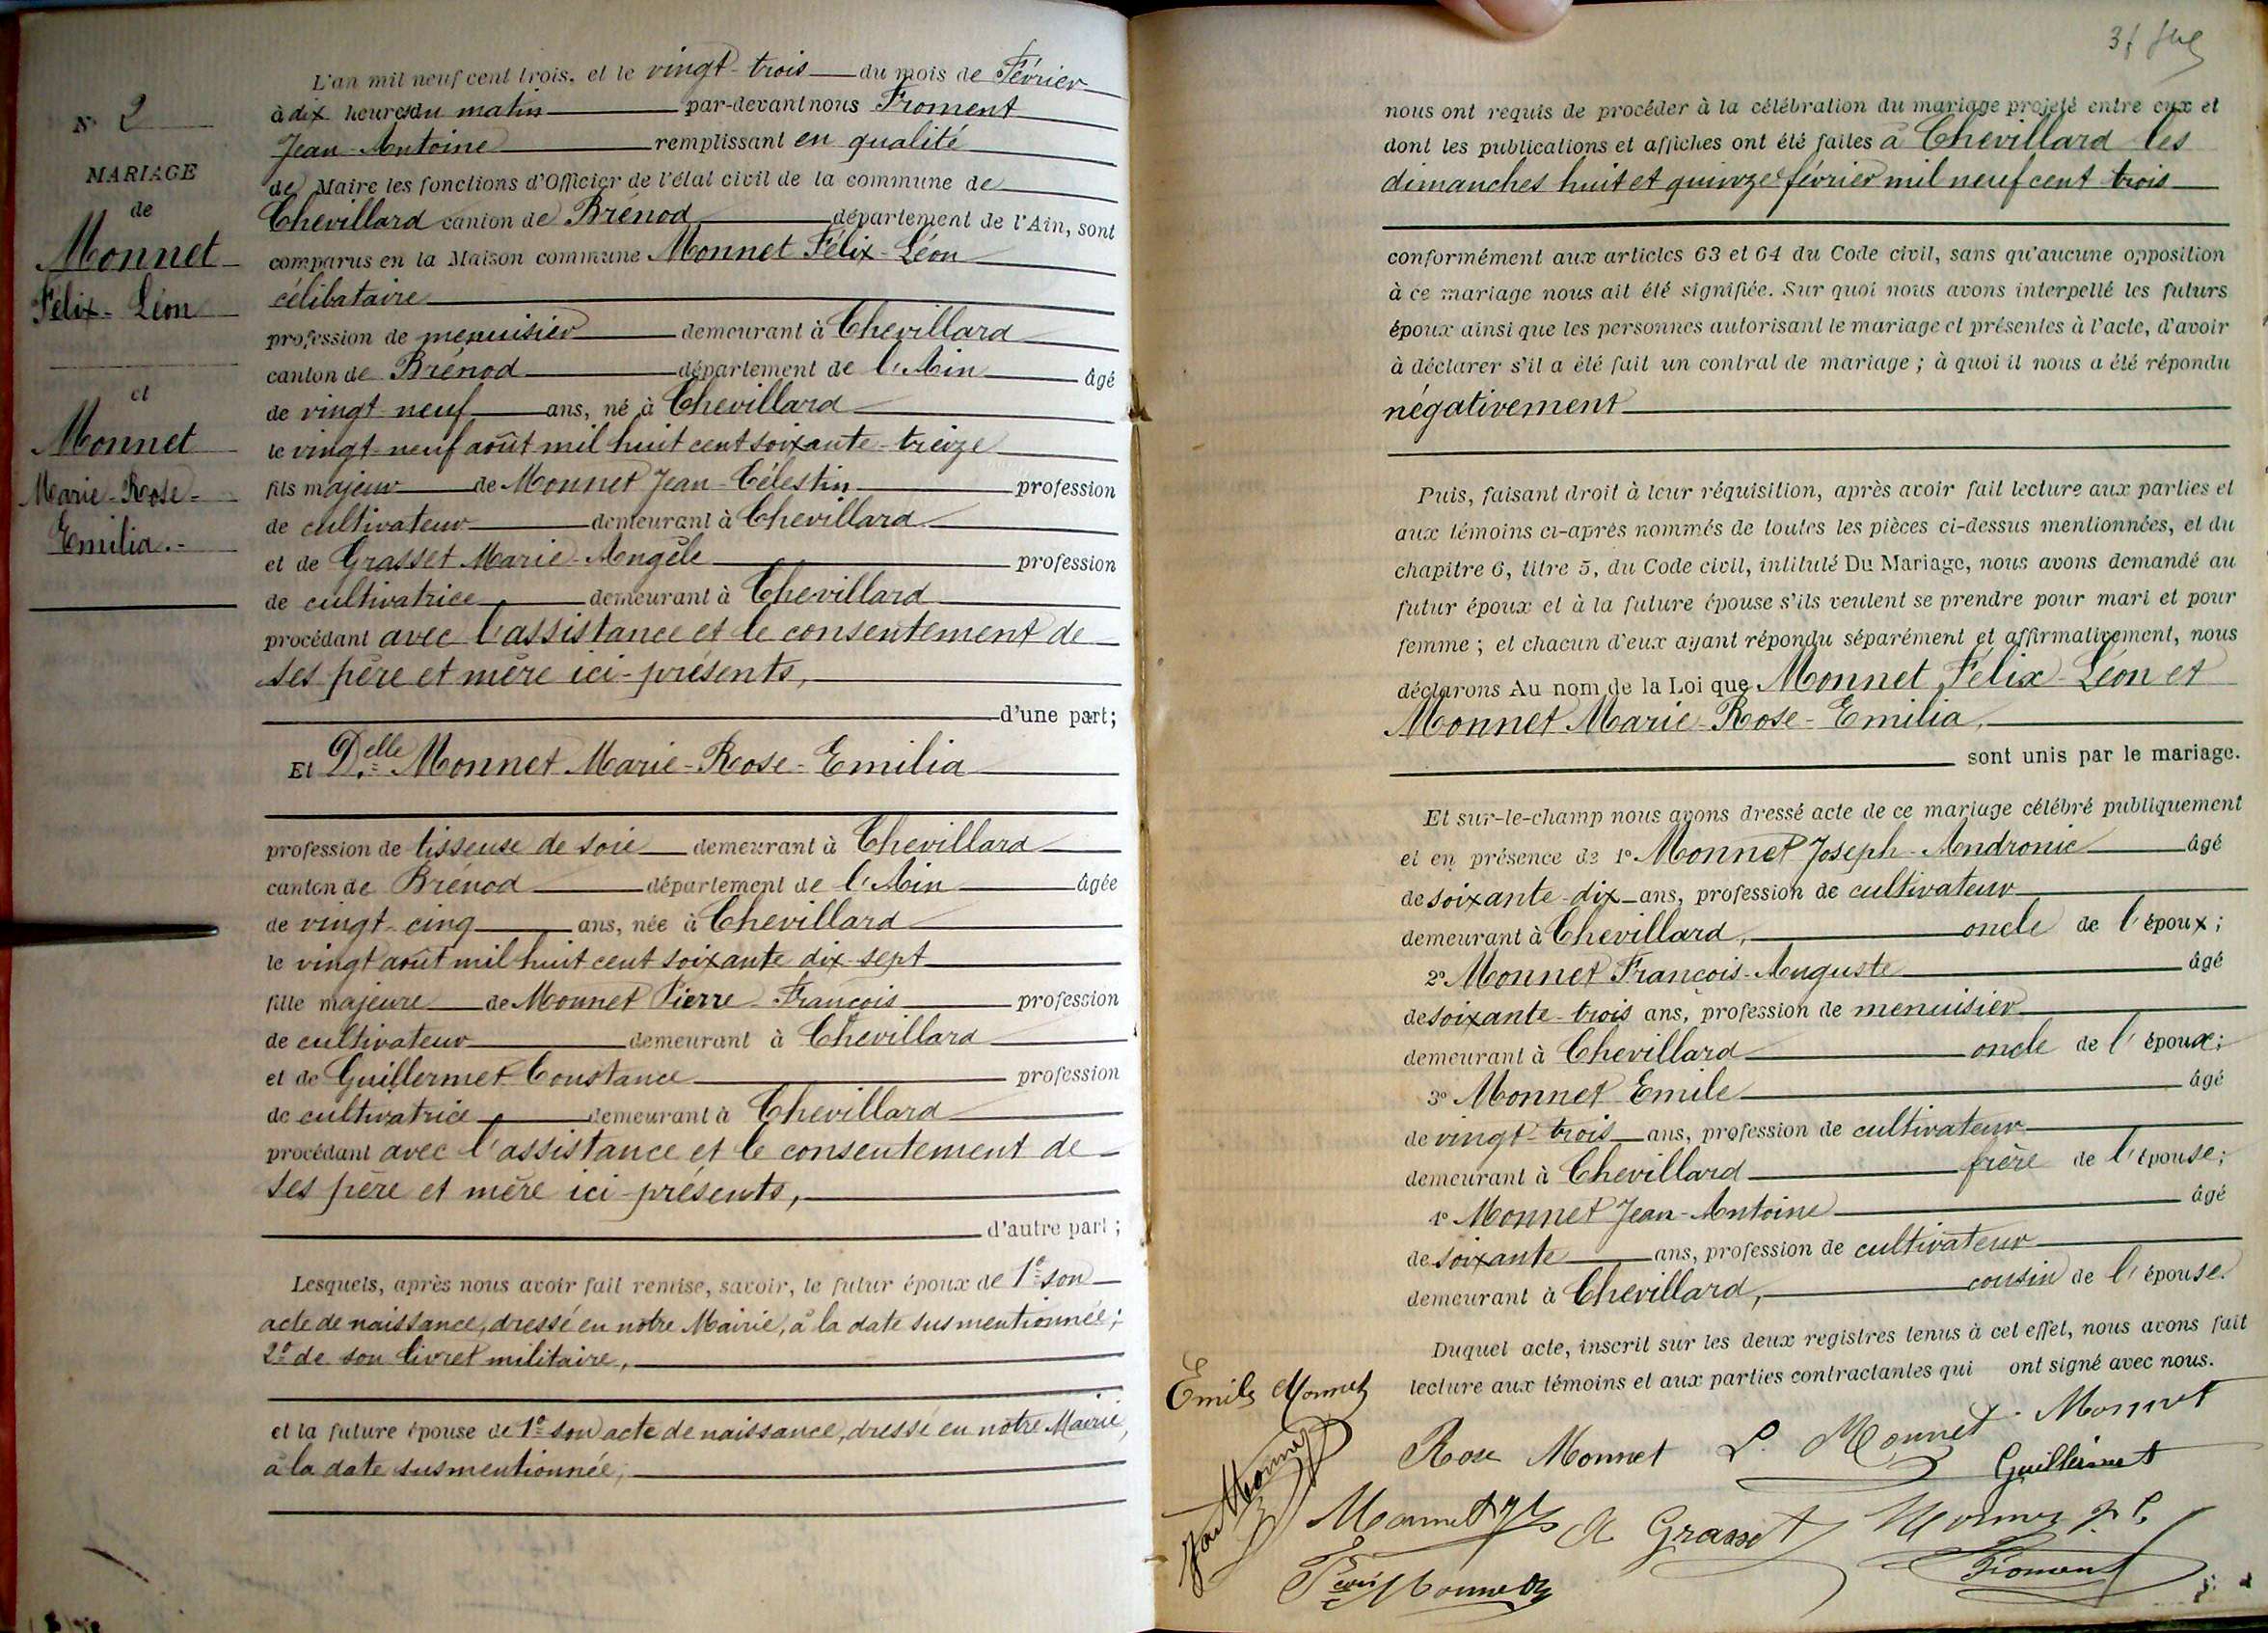 N° 2
MARIAGE
de
Monnet
Félix-Léon
et
Monnet
Marie-Rose-
Emilia.-
L'an mil neuf cent trois, et le vingt-trois du mois de Février
à dix heures du matin par-devant nous Froment
Jean-Antoine remplissant en qualité
de Maire les fonctions d'Officier de l'état civil de la commune de
Chevillard canton de Brénod département de l'Ain, sont
comparus en la Maison commune Monnet Félix-Léon
célibataire
profession de menuisier demeurant à Chevillard
canton de Brénod département de l'Ain âgé
de vingt-neuf ans, né à Chevillard
le vingt-neuf août mil huit cent soixante-treize
fils majeur de Monnet Jean-Célestin profession
de cultivateur demeurant à Chevillard
et de Grasset Marie-Angèle profession
de cultivatrice demeurant à Chevillard
procédant avec l'assistance et le consentement de
ses père et mère ici-présents,
d'une part;
Et Delle Monnet Marie-Rose-Emilia
profession de tisseuse de soie demeurant à Chevillard
canton de Brénod département de l'Ain âgée
de vingt-cinq ans, née à Chevillard
le vingt août mil huit cent soixante dix-sept
fille majeure de Monnet Pierre-François profession
de cultivateur demeurant à Chevillard
et de Guillermet Constance profession
de cultivatrice demeurant à Chevillard
procédant avec l'assistance et le consentement de
ses père et mère ici-présents,
d'autre part;
Lesquels, après nous avoir fait remise, savoir, le futur époux de 1° son
acte de naissance, dressé en notre Mairie, à la date susmentionnée;
2° de son livret militaire,
et la future épouse de 1° son acte de naissance, dressé en notre Mairie,
à la date susmentionnée;
nous ont requis de procéder à la célébration du mariage projeté entre eux et
dont les publications et affiches ont été faites à Chevillard les
dimanches huit et quinze février mil neuf cent trois
conformément aux articles 63 et 64 du Code civil, sans qu'aucune opposition
à ce mariage nous ait été signifiée. Sur quoi nous avons interpellé les futurs
époux ainsi que les personnes autorisant le mariage et présentes à l'acte, d'avoir
à déclarer s'il a été fait un contrat de mariage; à quoi il nous a été répondu
négativement
Puis, faisant droit à leur réquisition, après avoir fait lecture aux parties et
aux témoins ci-après nommés de toutes les pièces ci-dessus mentionnées, et du
chapitre 6, titre 5, du Code civil, intitulé Du Mariage, nous avons demandé au
futur époux et à la future épouse s'ils veulent se prendre pour mari et pour
femme; et chacun d'eux ayant répondu séparément et affirmativement, nous
déclarons Au nom de la Loi que Monnet Félix-Léon et
Monnet Marie-Rose-Emilia,
sont unis par le mariage.
Et sur-le-champ nous avons dressé acte de ce mariage célébré publiquement
et en présence de 1° Monnet Joseph-Andronic âgé
de soixante-dix ans, profession de cultivateur
demeurant à Chevillard, oncle de l'époux;
2° Monnet François-Auguste âgé
de soixante-trois ans, profession de menuisier
demeurant à Chevillard oncle de l'époux;
3° Monnet Emile âgé
de vingt-trois ans, profession de cultivateur
demeurant à Chevillard frère de l'épouse;
4° Monnet Jean-Antoine âgé
de soixante ans, profession de cultivateur
demeurant à Chevillard, cousin de l'épouse.
Duquel acte, inscrit sur les deux registres tenus à cet effet, nous avons fait
lecture aux témoins et aux parties contractantes qui ont signé avec nous.
Emile Monnet
Rose Monnet L. Monnet Monnet
Guillermet
Monnet
Monnet A Grasset
Monnet
Froment